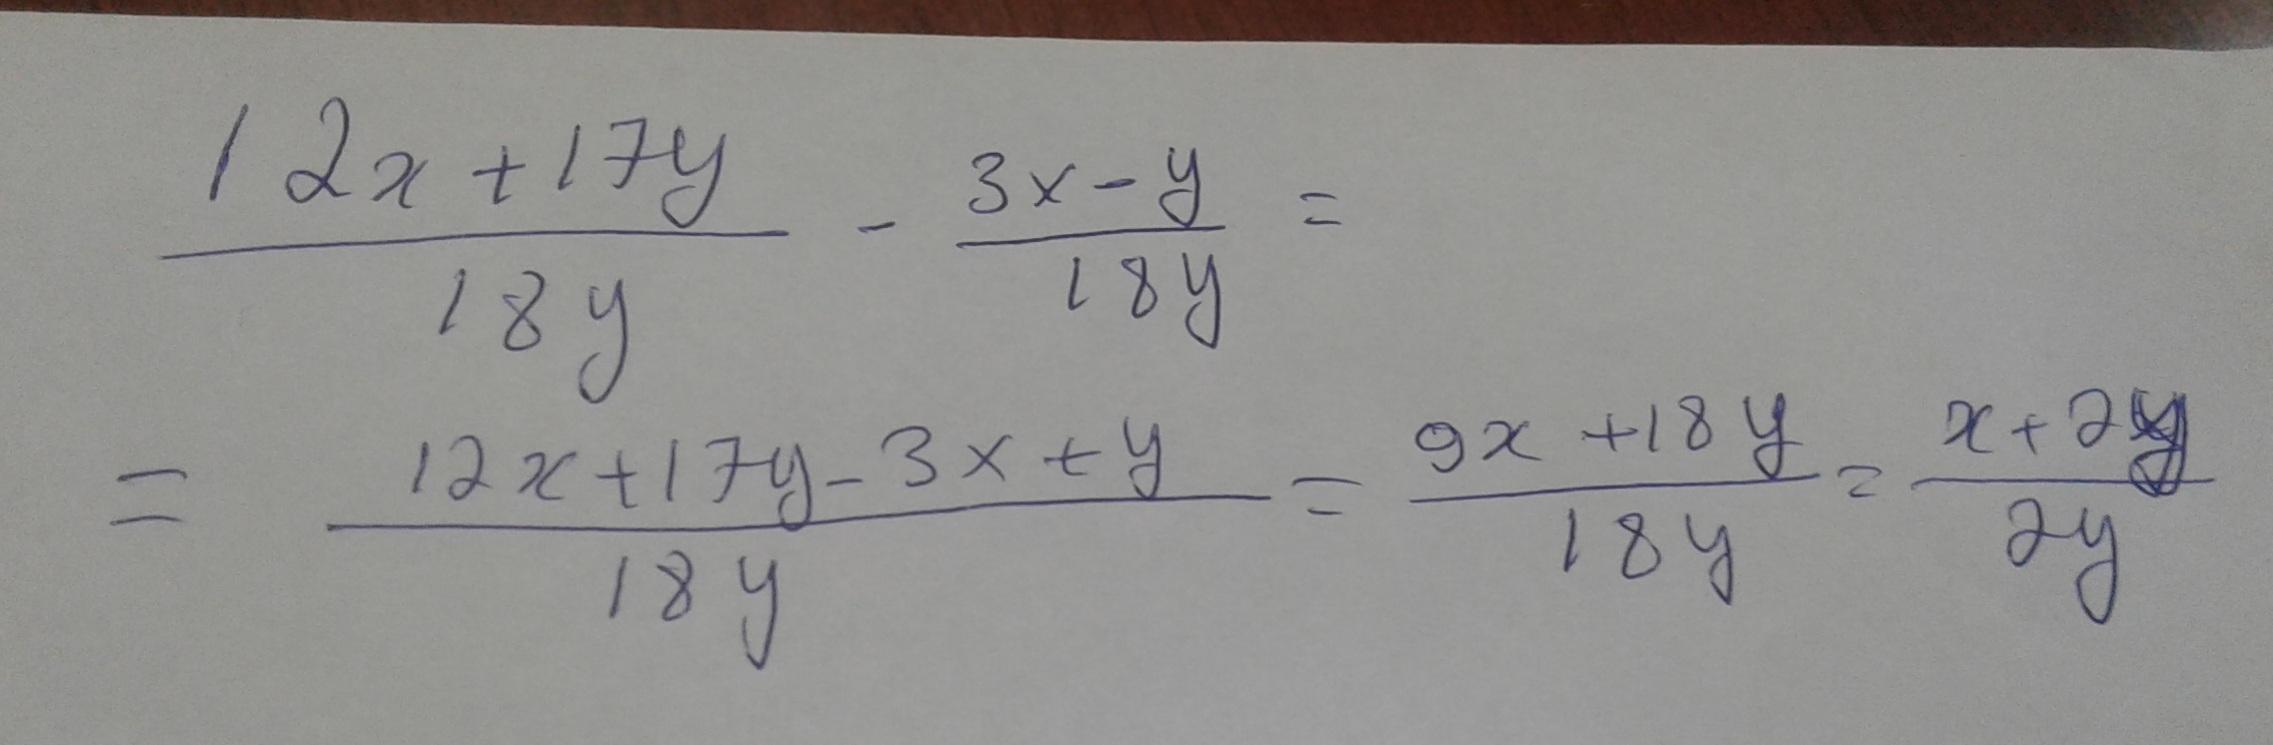 12x+17y/18y - 3x-y/18y =
= 12x+17y-3x+y/18y = 9x+18y/18y = x+2y/2y